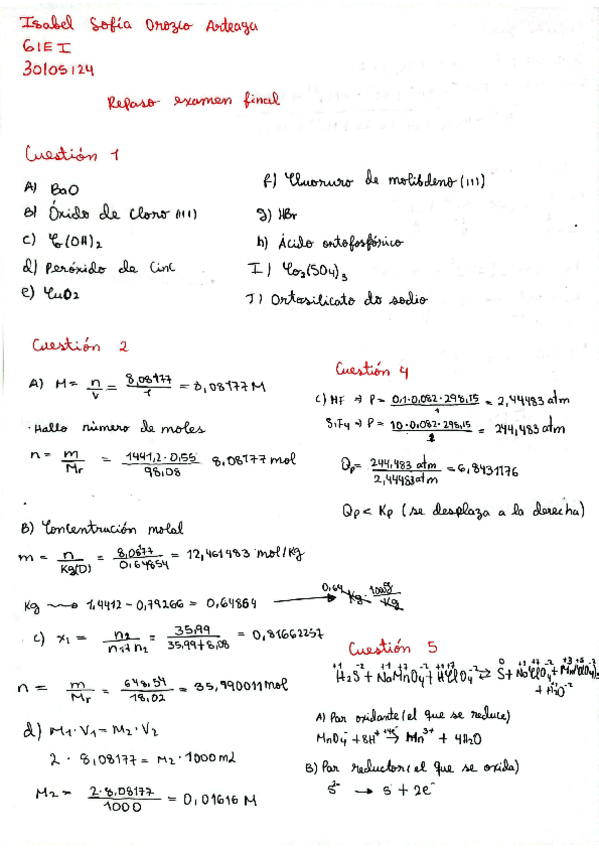 Isabel Sofía Orozco Arteaga
G1EI
30/05/24
Repaso examen final
Cuestión 1
A) BaO
B) Óxido de cloro (III)
c) (OH)2
d) Peróxido de Cinc
e) CuO2
f) de molibdeno (III)
g) HBr
h) Ácido ortofosfórico
I) Co2(SO4)3
J) Ortosilicato do sodio
Cuestión 2
A) M = n/V = 8,08177/1 = 8,08177 M
· Hallo número de moles
n = m/Mr = 1441,2·0,55/98,08 8,08177 mol
B) Concentración molal
m = n/Kg(D) = 8,0877/0,64854 = 12,461483 mol/Kg
Kg → 1,4412 - 0,79266 = 0,64864 → 0,64 Kg · 1000g/Kg
c) x1 = n2/n1+n2 = 35,99/35,99+8,08 = 0,81662257
n = m/Mr = 648,54/18,02 = 35,990011 mol
d) M1·V1 = M2·V2
2 · 8,08177 = M2 · 1000 mL
M2 = 2·8,08177/1000 = 0,01616 M
Cuestión 4
c) HF → P = 0,1·0,082·298,15/1 = 2,44483 atm
SiF4 → P = 10·0,082·298,15/ = 244,483 atm
Qp = 244,483 atm/2,44483 atm = 6,8431176
Qp < Kp (se desplaza a la derecha)
Cuestión 5
H2S + NaMnO4 + HClO4 ⇄ S + NaClO4 +
+ H2O
A) Par oxidante (el que se reduce)
MnO4⁻ + 8H⁺ → Mn³⁺ + 4H2O
B) Par reductor (el que se oxida)
S²⁻ → S + 2e⁻